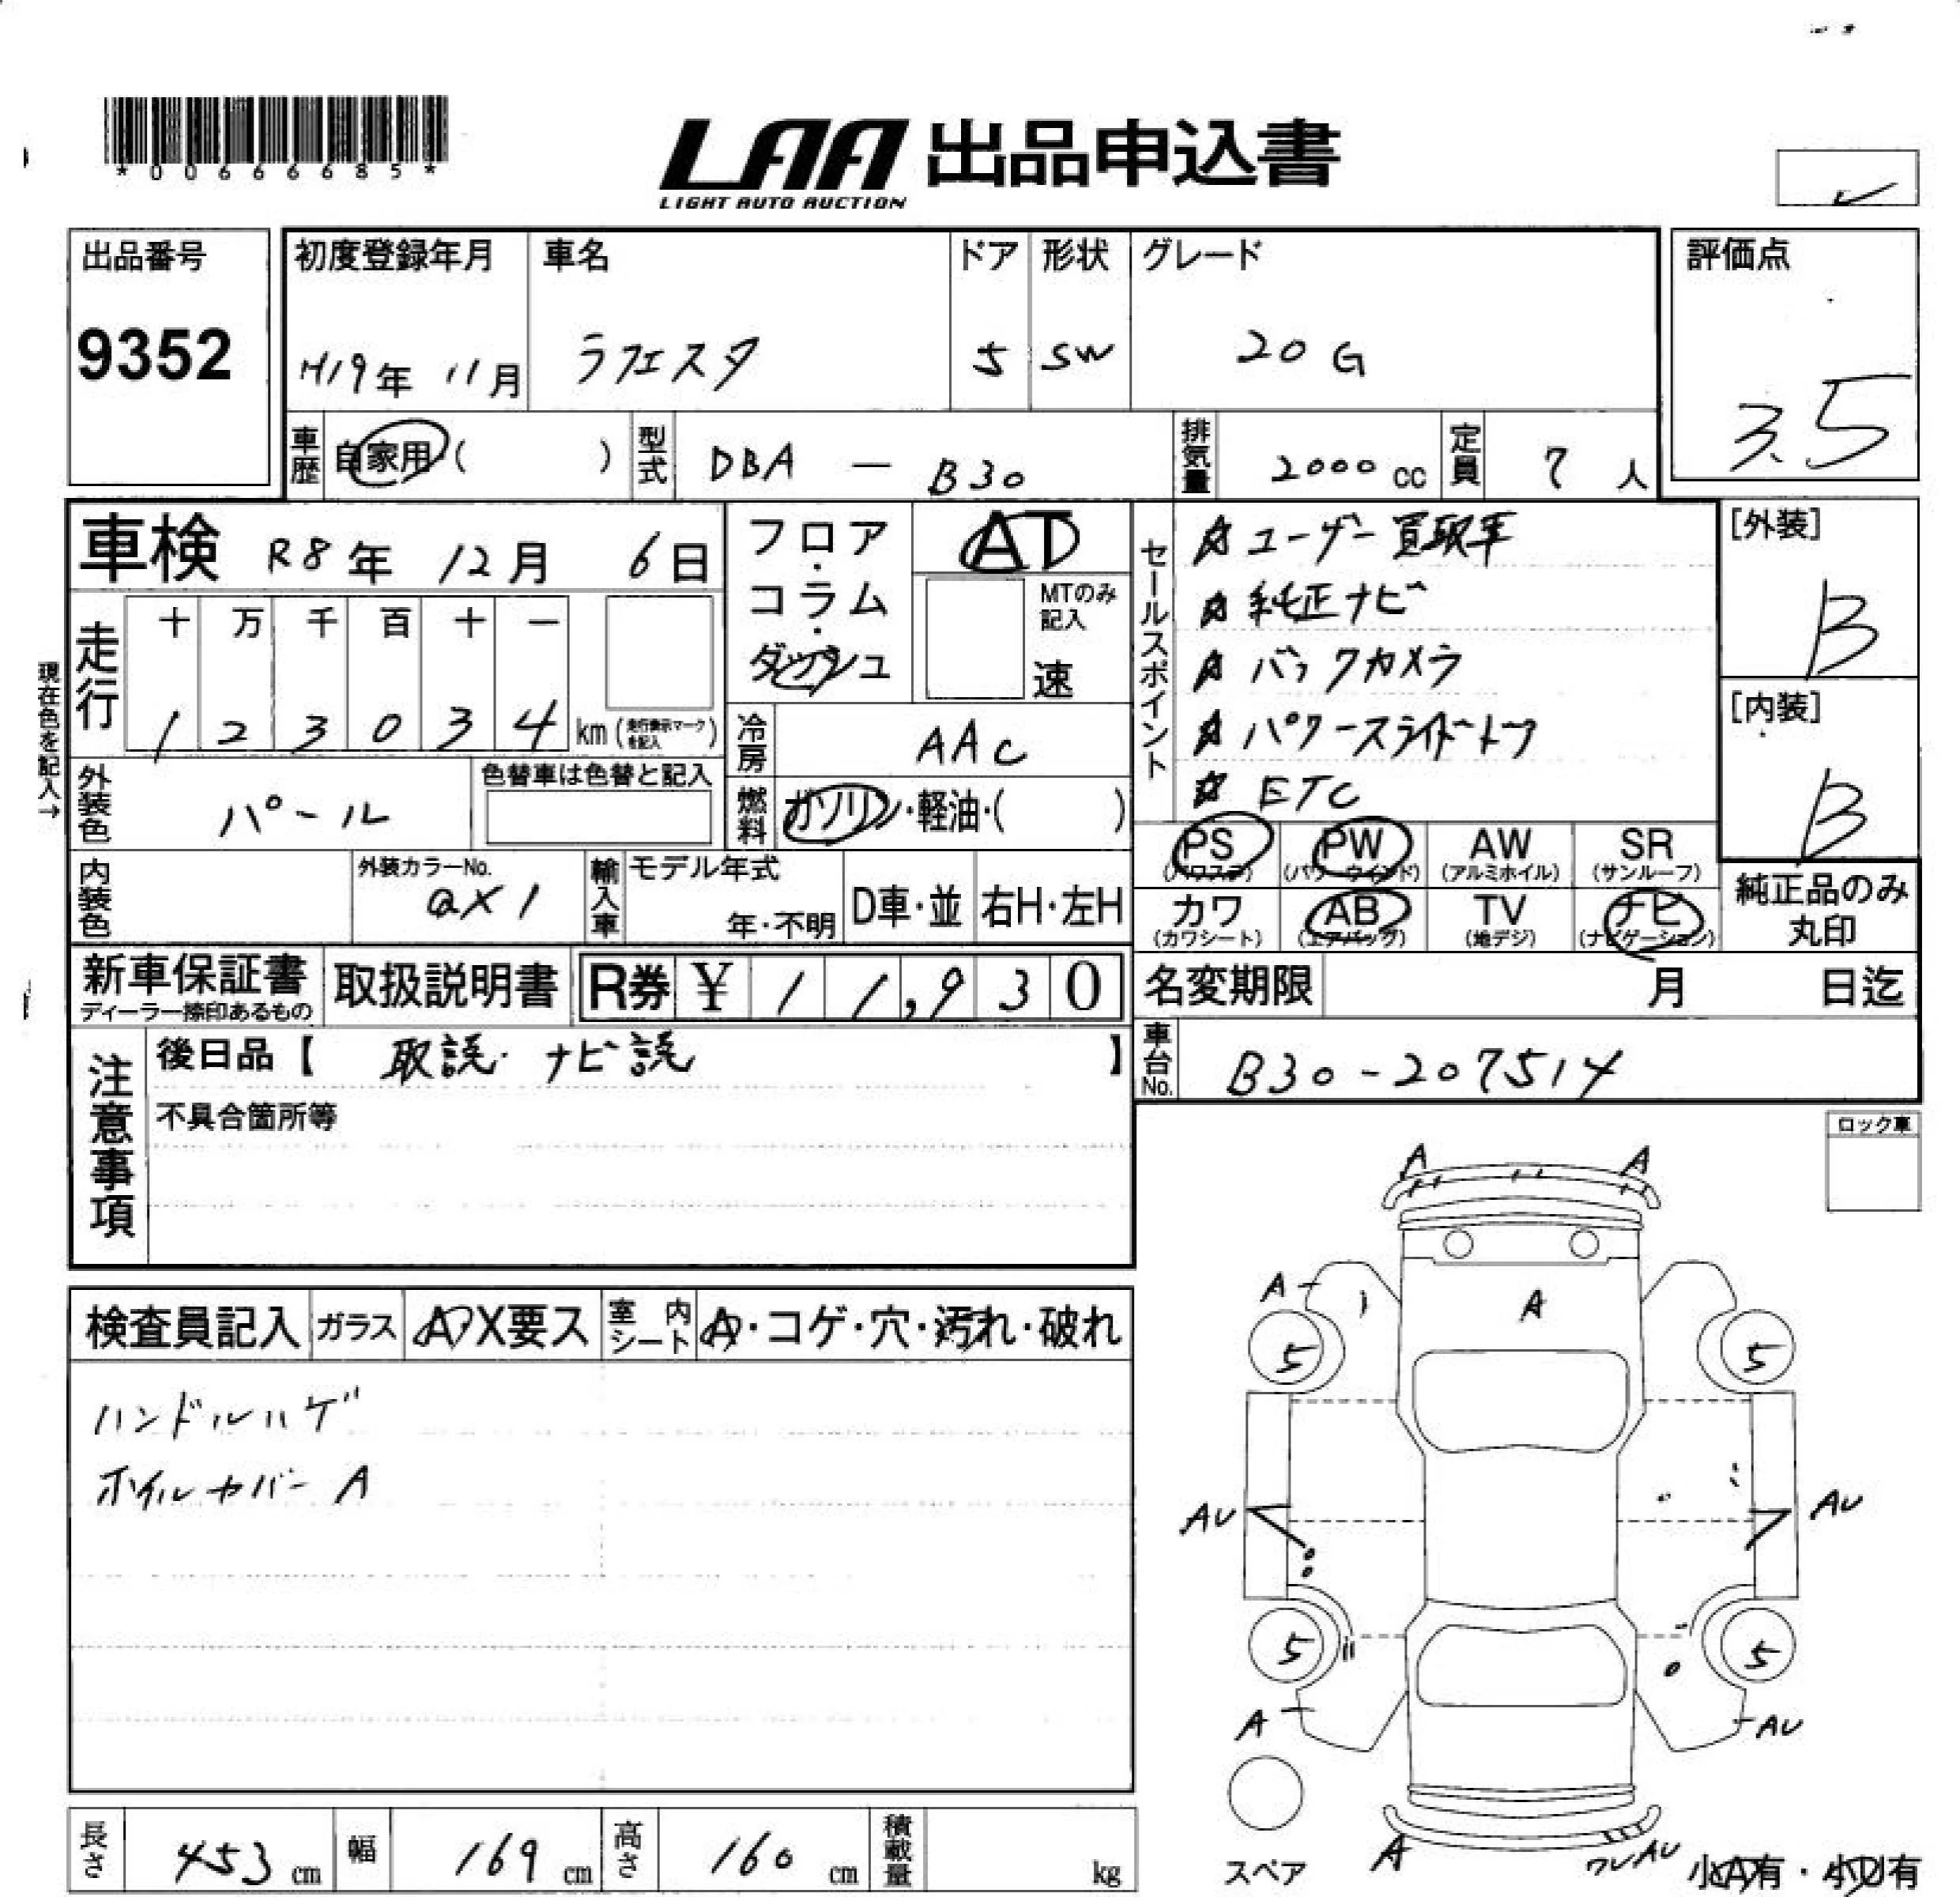 *00666685*
LAA 出品申込書
LIGHT AUTO AUCTION
出品番号
9352
初度登録年月
H19年 11月
車名
ラフェスタ
ドア
5
形状
SW
グレード
20G
評価点
3.5
車歴
自家用( )
型式
DBA — B30
排気量
2000 cc
定員
7 人
車検 R8年 12月 6日
フロア・コラム・ダッシュ
AT
MTのみ記入
速
現在色を記入→
走行
十 万 千 百 十 一
1 2 3 0 3 4 km (走行表示マークを記入)
冷房
AAC
燃料
ガソリン・軽油・( )
外装色
パール
色替車は色替と記入
内装色
外装カラーNo.
QX1
輸入車
モデル年式
年・不明
D車・並
右H・左H
セールスポイント
☆ ユーザー買取車
☆ 純正ナビ
☆ バックカメラ
☆ パワースライドドア
☆ ETC
[外装]
B
[内装]
B
PS (パワステ)
PW (パワーウインド)
AW (アルミホイル)
SR (サンルーフ)
カワ (カワシート)
AB (エアバッグ)
TV (地デジ)
ナビ (ナビゲーション)
純正品のみ丸印
新車保証書
ディーラー捺印あるもの
取扱説明書
R券 ¥ 11,930
名変期限 月 日迄
注意事項
後日品【 取説・ナビ説 】
不具合箇所等
車台No.
B30-207514
ロック車
検査員記入
ガラス
A・X要ス
室内シート
A・コゲ・穴・汚れ・破れ
ハンドルハゲ
ホイルカバーA
A A
A A
5 5
AU AU
5 5
A AU
スペア
A ワレAU
小A有・小U有
長さ 453 cm
幅 169 cm
高さ 160 cm
積載量 kg